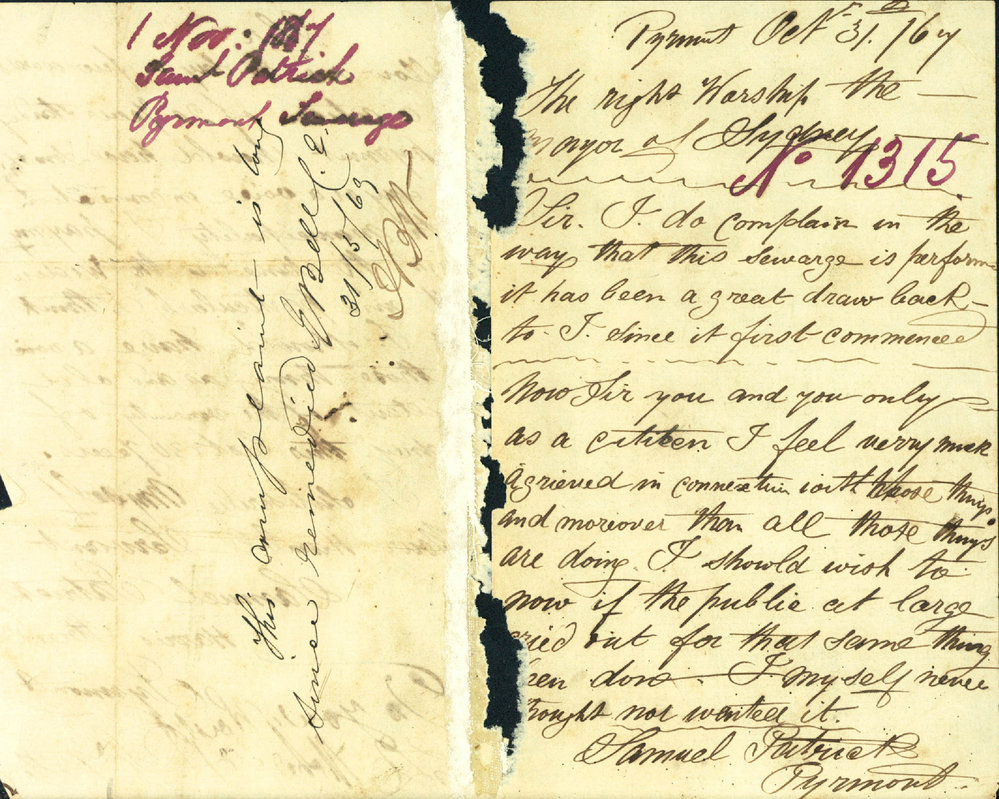 1 Nov: 1867
Saml Patrick
Pyrmont Sewerage
This complaint is long
since remedied E Bell C.E.
31/5/69
Pyrmont Octr 31st /67
The right Worship the —
Mayor of Sydney
No 1315
Sir. I do complain in the
way that this sewarge is perform
it has been a great draw back —
to I. since it first commenced
Now Sir you and you only
as a citizen I feel verry muck
agrieved in connection with those things
and moreover than all those things
are doing. I showld wish to
now if the public at large
cried out for that same thing
been done — I myself never
thought nor wanted it.
Samuel Patrick
Pyrmont.